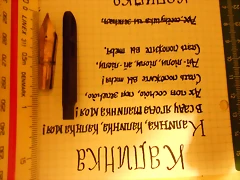 Калинка
Калинка, калинка, калинка моя!
В саду ягода малинка моя!
Ах под сосною, под зеленою
Спать положите вы меня,
Ай-люли, люли, ай-люли,
Спать положите вы меня.
Калинка
LINEX
DENMARK